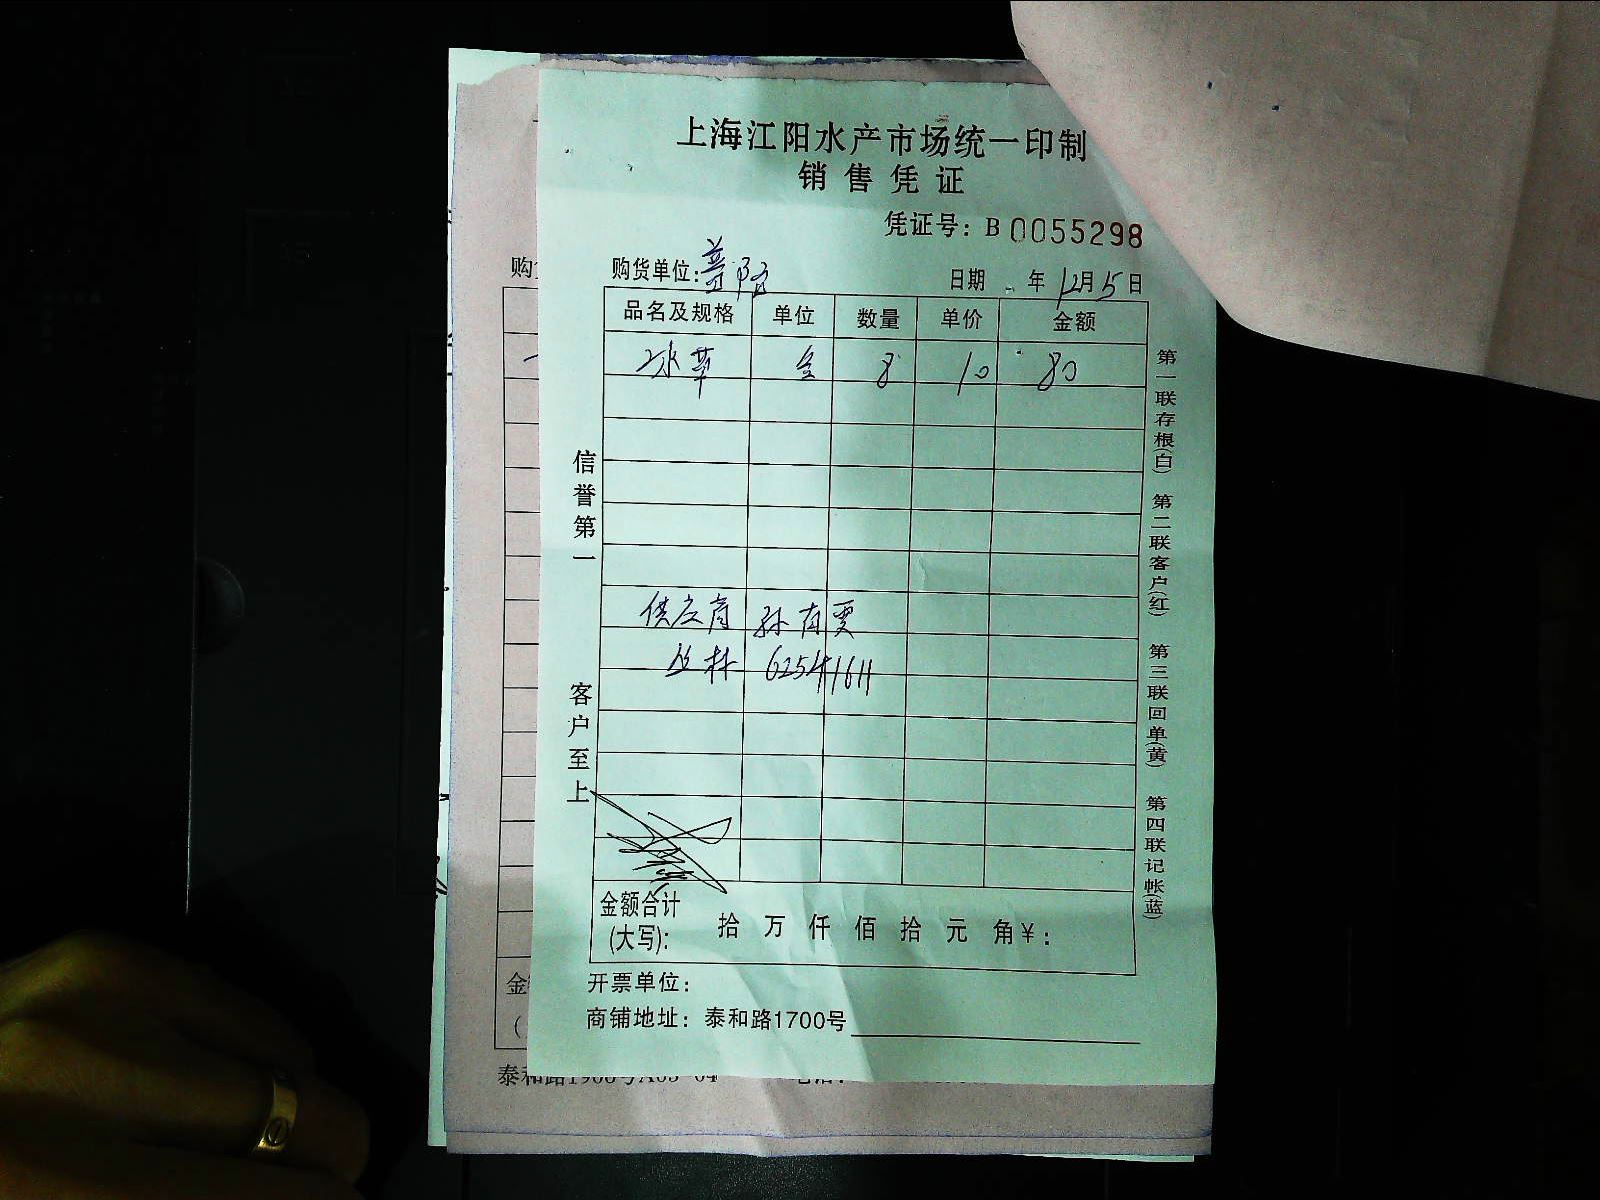 上海江阳水产市场统一印制
销售凭证
凭证号：B 0055298
购货单位：普陀 日期 年 12月15日
品名及规格 单位 数量 单价 金额
8 10 80
信誉第一
客户至上
供应商 孙
丛林 62541611
金额合计(大写)： 拾 万 仟 佰 拾 元 角 ¥：
开票单位：
商铺地址：泰和路1700号
第一联存根(白) 第二联客户(红) 第三联回单(黄) 第四联记帐(蓝)